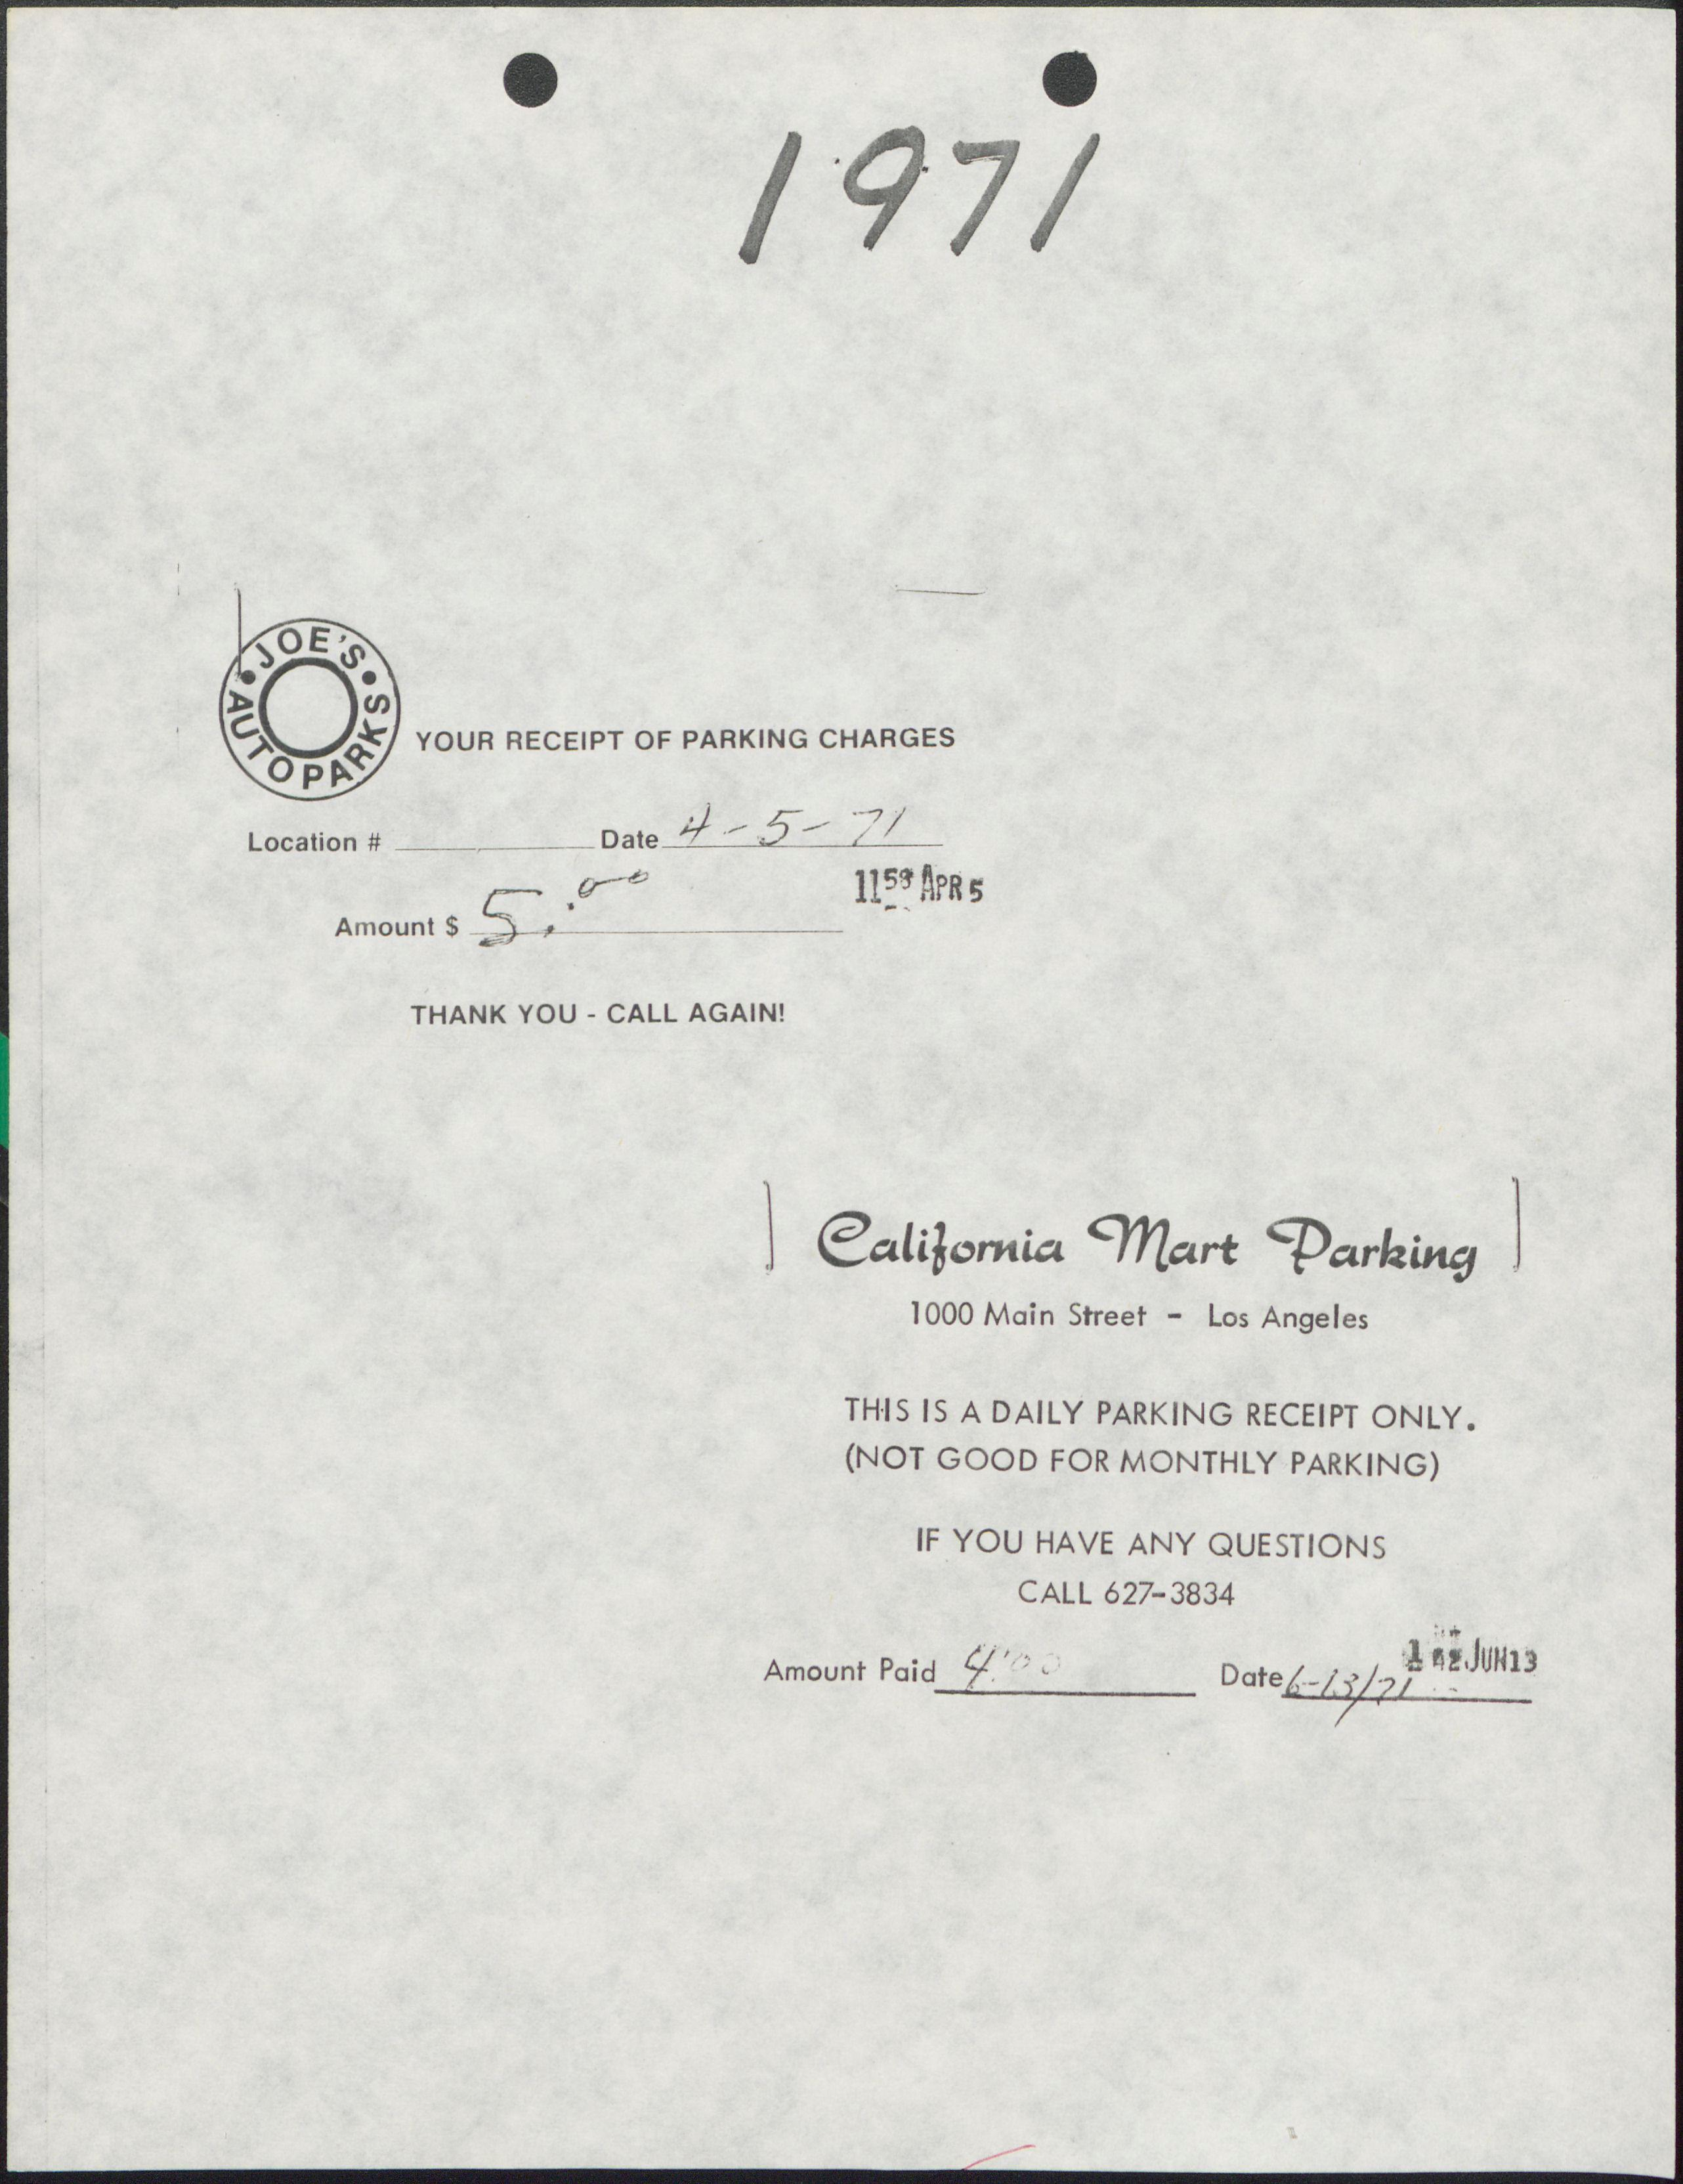 1971
JOE'S AUTO PARKS
YOUR RECEIPT OF PARKING CHARGES
Location # Date 4-5-71
1158 APR 5
Amount $ 5.00
THANK YOU - CALL AGAIN!
California Mart Parking
1000 Main Street - Los Angeles
THIS IS A DAILY PARKING RECEIPT ONLY.
(NOT GOOD FOR MONTHLY PARKING)
IF YOU HAVE ANY QUESTIONS
CALL 627-3834
JUN 13
Amount Paid 4.00 Date 6-13/71